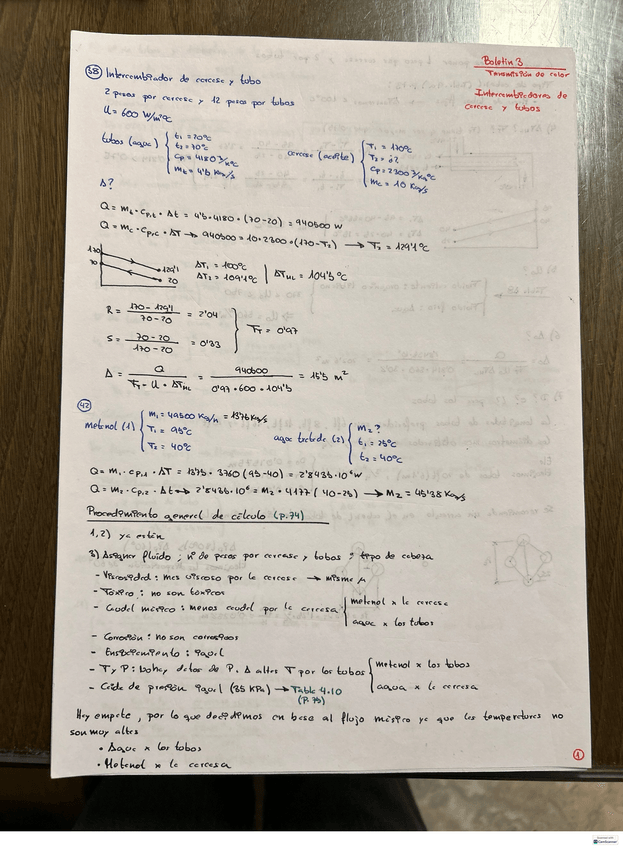 Boletín 3
Transmisión de calor
Intercambiadores de
carcasa y tubos
38 Intercambiador de carcasa y tubo
2 pasos por carcasa y 12 pasos por tubos
U = 600 W/m²°C
tubos (agua) { t₁ = 20°C
t₂ = 70°C
Cp = 4180 J/kg°C
mt = 4'5 Kg/s
carcasa (aceite) { T₁ = 170°C
T₂ = ¿?
Cp = 2300 J/kg°C
mc = 10 Kg/s
A?
Q = mt · cp,t · Δt = 4'5 · 4180 · (70-20) = 940500 W
Q = mc · cp,c · ΔT → 940500 = 10 · 2300 · (170-T₂) → T₂ = 129'1°C
170
70
129'1
20
ΔT₁ = 100°C
ΔT₂ = 109'1°C | ΔTML = 104'5°C
R = (170 - 129'1)/(70-20) = 2'04
S = (70-20)/(170-20) = 0'33
} FT = 0'97
A = Q/(FT · U · ΔTML) = 940500/(0'97 · 600 · 104'5) = 15'5 m²
42
metanol (1) { m₁ = 49500 Kg/h = 13'75 Kg/s
T₁ = 95°C
T₂ = 40°C
agua tratada (2) { m₂?
t₁ = 25°C
t₂ = 40°C
Q = m₁ · cp,1 · ΔT = 13'75 · 3760 (95-40) = 2'8435·10⁶ W
Q = m₂ · cp,2 · Δt → 2'8435·10⁶ = m₂ · 4177 (40-25) → m₂ = 45'38 Kg/s
Procedimiento general de cálculo (p.74)
1,2) ya están
3) Asignar fluido, nº de pasos por carcasa y tubos y tipo de cabeza
- Viscosidad : más viscoso por la carcasa → misma μ
- Tóxico : no son tóxicos
- Caudal másico : menos caudal por la carcasa { metanol x la carcasa
agua x los tubos
- Corrosión : no son corrosivos
- Ensuciamiento : igual
- T y P : no hay datos de P. A altas T por los tubos { metanol x los tubos
agua x la carcasa
- Caída de presión igual (35 KPa) → Tabla 4.10
(P.75)
Hay empate, por lo que decidimos en base al flujo másico ya que las temperaturas no
son muy altas
• Agua x los tubos
• Metanol x la carcasa
1
CamScanner